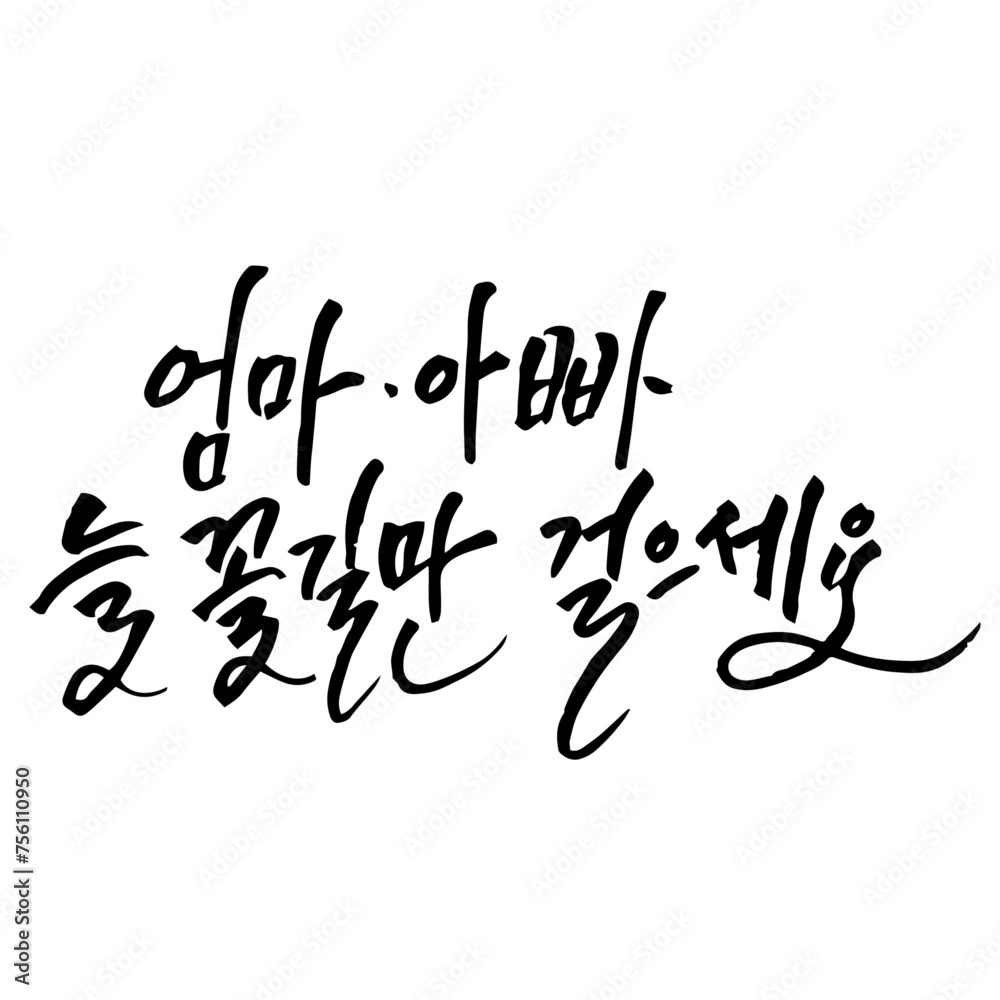 엄마·아빠
늘 꽃길만 걸으세요
Adobe Stock | #756110950